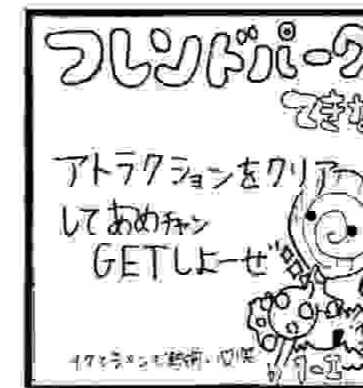 フレンドパーク
できな
アトラクションをクリアー
してあめチャン
GETしよーぜ
1-I